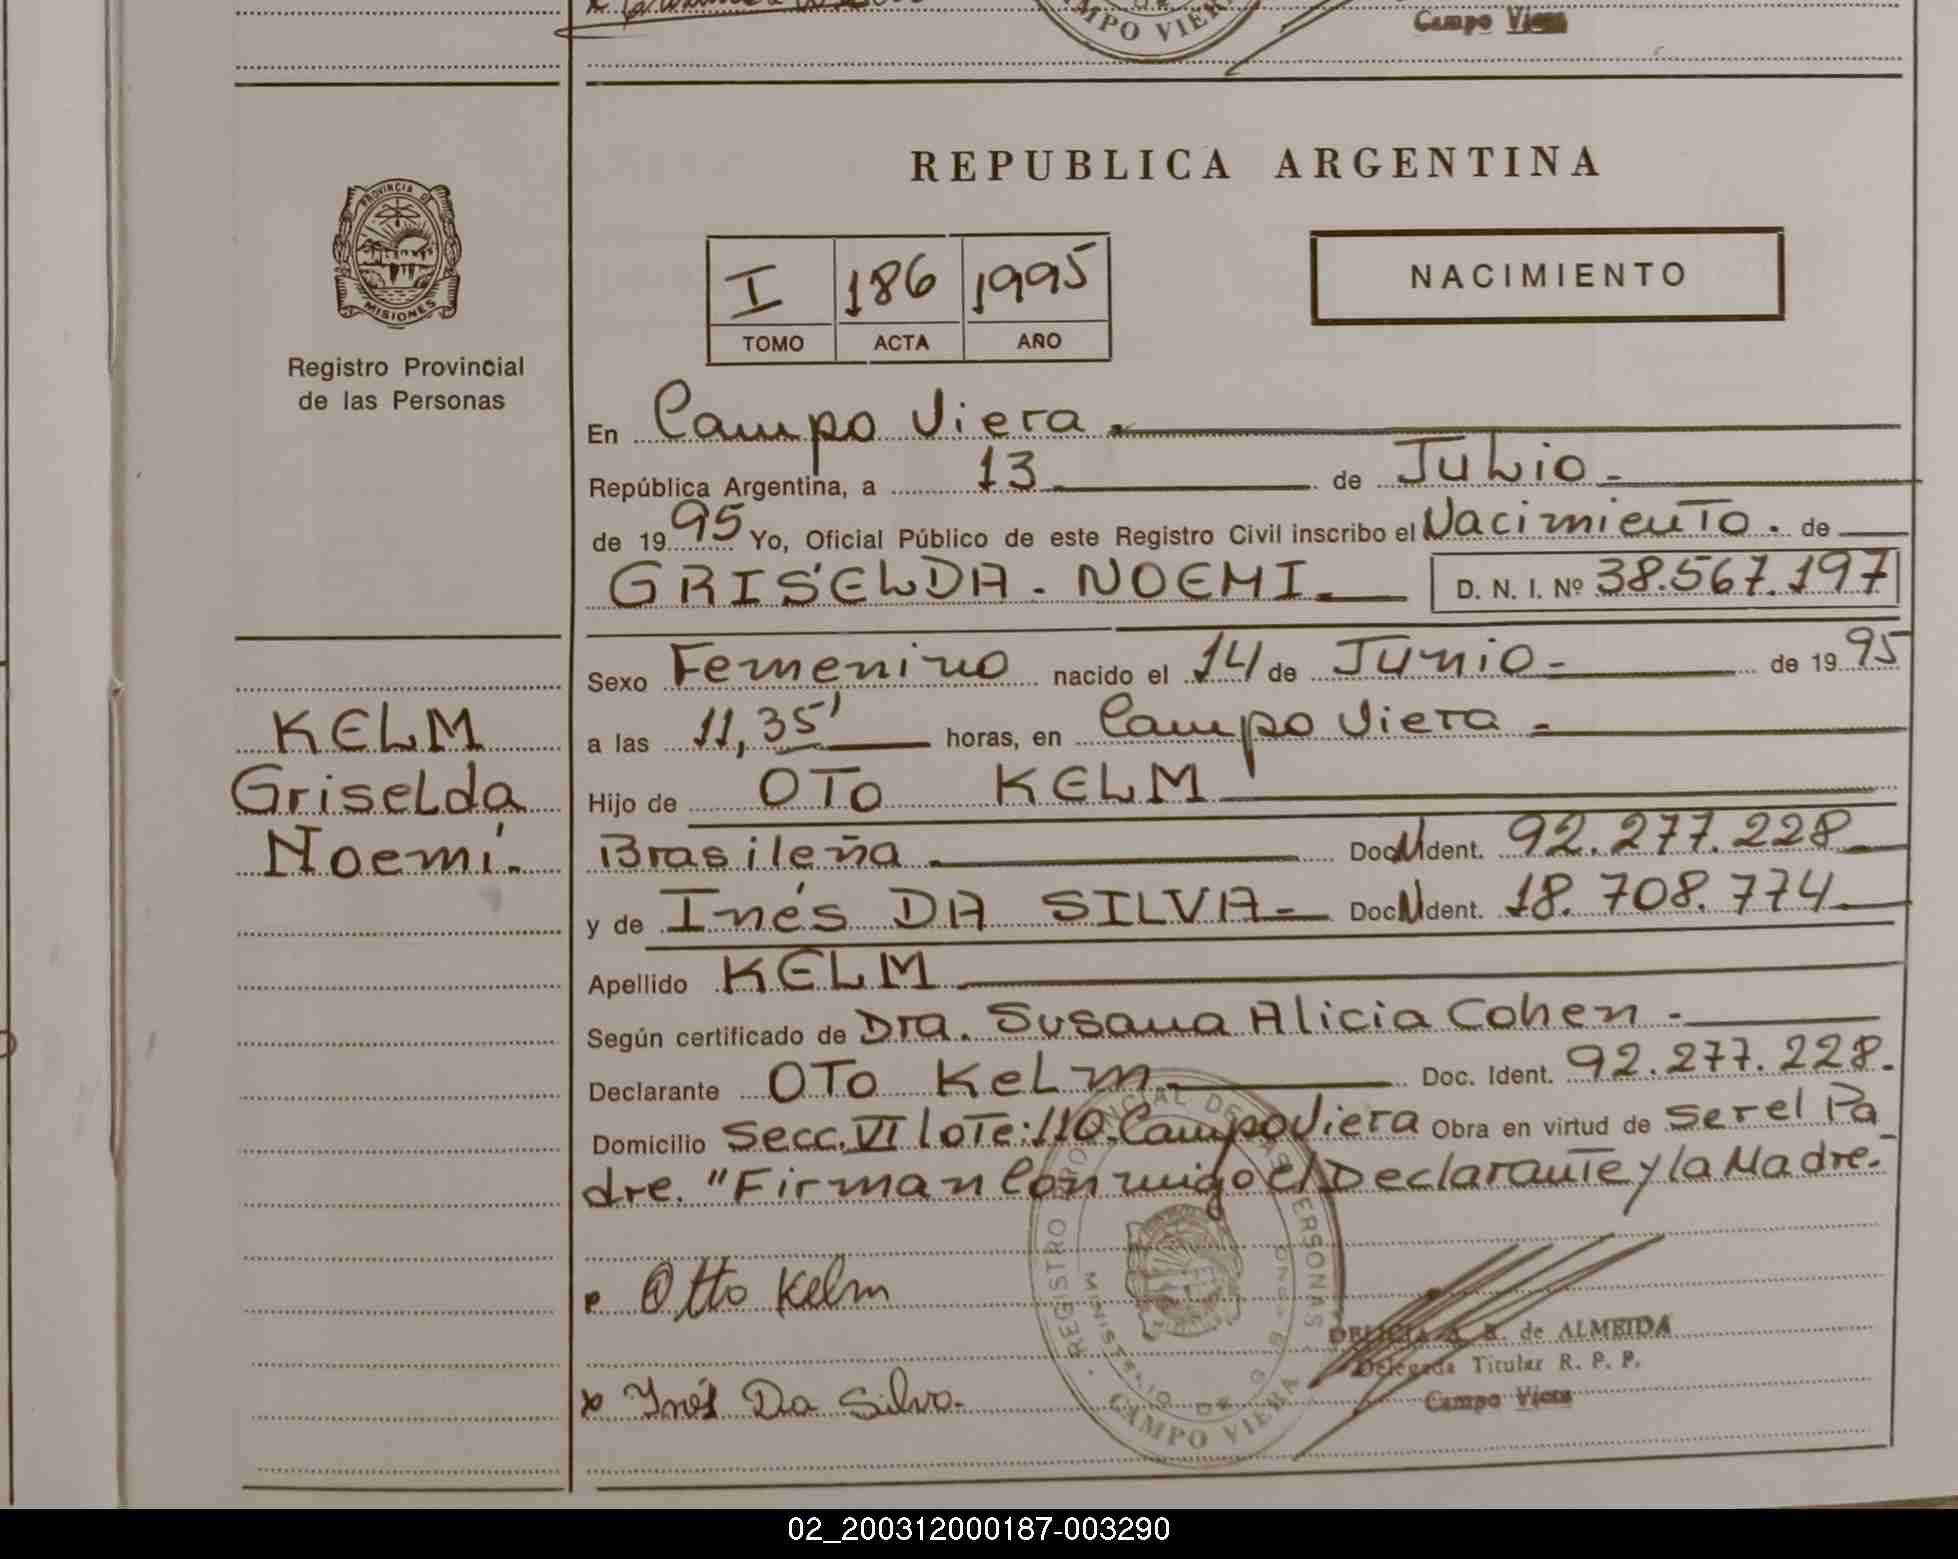 CAMPO VIERA
Campo Viera
PROVINCIA DE
MISIONES
Registro Provincial
de las Personas
REPUBLICA ARGENTINA
I 186 1995
TOMO ACTA AÑO
NACIMIENTO
En Campo Viera.
República Argentina, a 13 de Julio -
de 1995 Yo, Oficial Público de este Registro Civil inscribo el Nacimiento. de
GRISELDA - NOEMI. D. N. I. Nº 38.567.197
Sexo Femenino nacido el 14 de Junio - de 1995
a las 11,35' horas, en Campo Viera -
KELM
Griselda
Noemí.
Hijo de OTO KELM
Brasileña Doc. Ident. 92.277.228
y de Inés DA SILVA - Doc. Ident. 18.708.774
Apellido KELM
Según certificado de Dra. Susana Alicia Cohen -
Declarante OTO KeLm Doc. Ident. 92.277.228.
Domicilio Secc. VI lote: 110. Campo Viera Obra en virtud de ser el Pa
dre. "Firman Conmigo el Declarante y la Madre.-
Otto Kelm
x Inés Da Silva.
REGISTRO PROVINCIAL DE LAS PERSONAS
MINISTERIO DE GOB
CAMPO VIERA
de ALMEIDA
Delegada Titular R. P. P.
Campo Viera
02_200312000187-003290